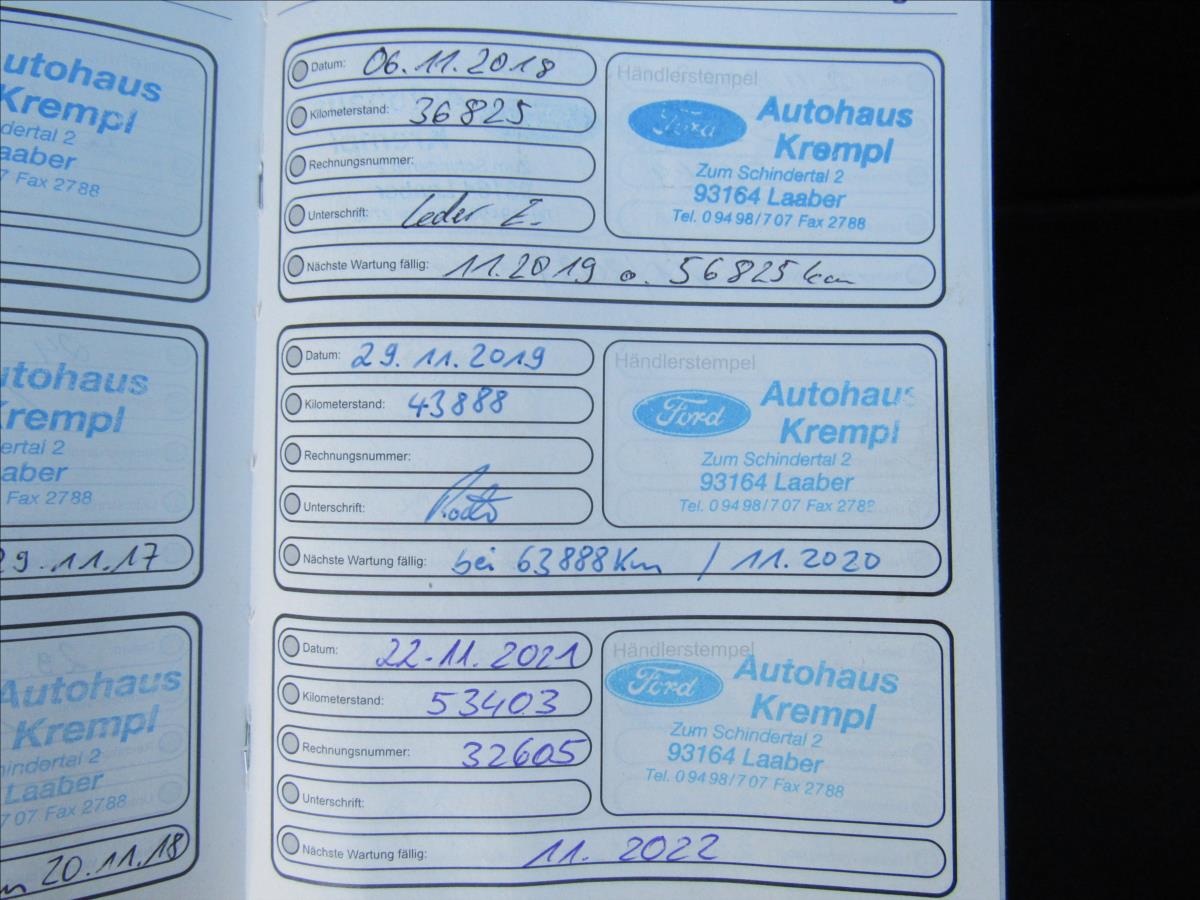 utohaus
Krempl
dertal 2
aaber
7 Fax 2788
utohaus
Krempl
ertal 2
aaber
Fax 2788
29.11.17
Autohaus
Krempl
hindertal 2
Laaber
7 07 Fax 2788
20.11.18
Datum: 06.11.2018
Kilometerstand: 36825
Rechnungsnummer:
Unterschrift:
Nächste Wartung fällig: 11.2019 o. 56825 km
Händlerstempel
Ford
Autohaus
Krempl
Zum Schindertal 2
93164 Laaber
Tel. 0 94 98/7 07 Fax 2788
Datum: 29.11.2019
Kilometerstand: 43888
Rechnungsnummer:
Unterschrift:
Nächste Wartung fällig: bei 63888 Km / 11.2020
Händlerstempel
Ford
Autohaus
Krempl
Zum Schindertal 2
93164 Laaber
Tel. 0 94 98/7 07 Fax 2788
Datum: 22.11.2021
Kilometerstand: 53403
Rechnungsnummer: 32605
Unterschrift:
Nächste Wartung fällig: 11. 2022
Händlerstempel
Ford
Autohaus
Krempl
Zum Schindertal 2
93164 Laaber
Tel. 0 94 98/7 07 Fax 2788